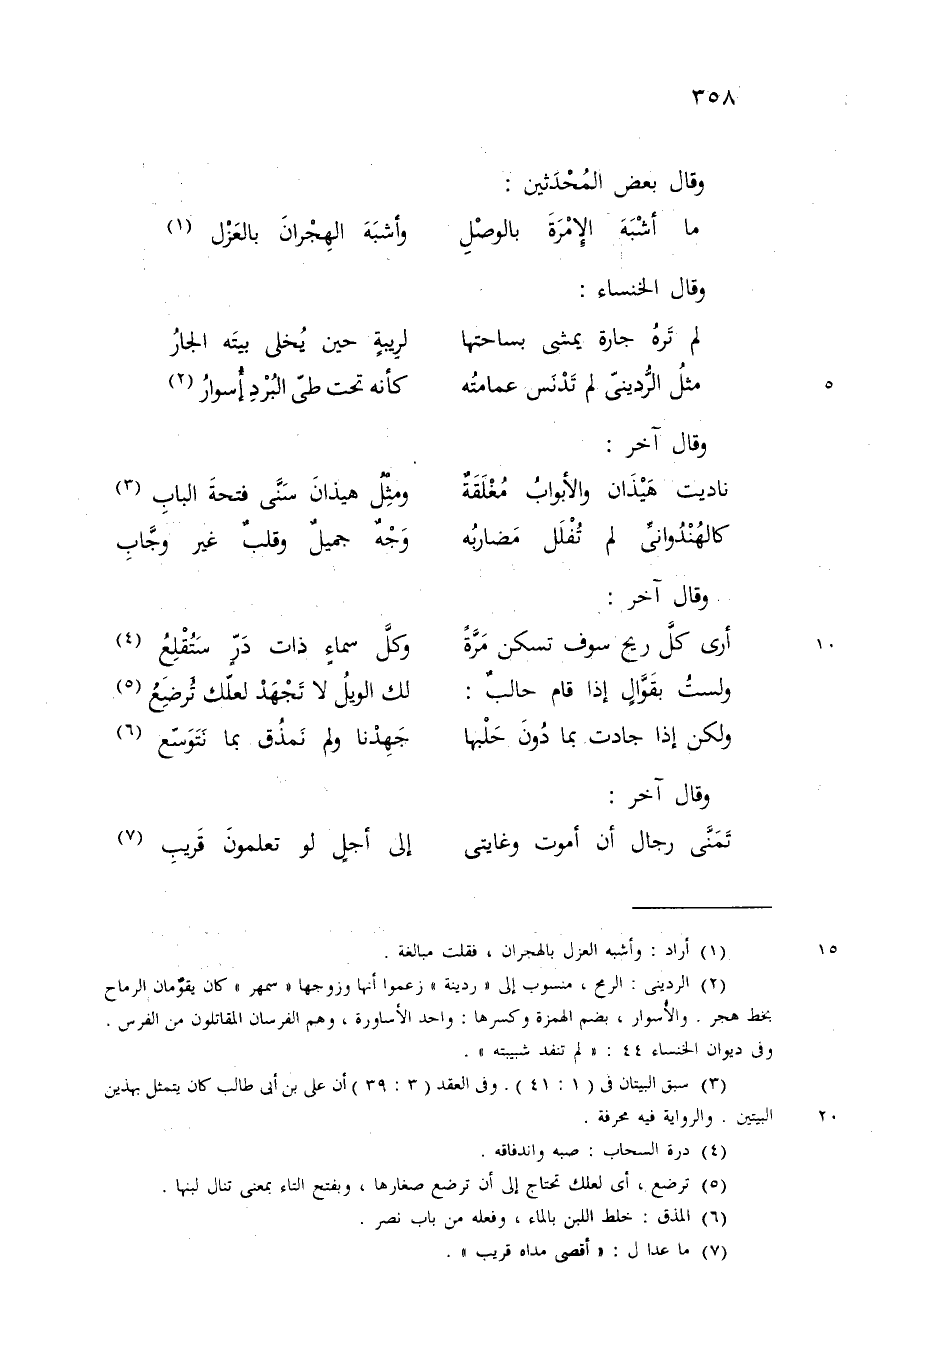 ٣٥٨
وقال بعض المُحْدَثين :
ما أشْبَهَ الإمْرَةَ بالوصْلِ وأشبَهَ الهِجْرانَ بالعَزْلِ (١)
وقال الخنساء :
لم تَرهُ جارة يمشى بساحتها لرِيبةٍ حين يُخلى بيتَه الجارُ
مثلُ الرُّدينىّ لم تَدْنَس عمامته كأنه تحت طىّ البُرْدِ أُسوارُ (٢)
٥
وقال آخر :
ناديت هَيْذَان والأبوابُ مُغْلَقَةٌ ومثِلُ هيذانَ سَنَّى فتحةَ البابِ (٣)
كالهُنْدُوانىِّ لم تُفْلَل مَضاربُه وَجْهٌ جميلٌ وقلبٌ غير وجَّاب
وقال آخر :
أرى كلَّ ريح سوف تسكن مَرَّةً وكلَّ سماءٍ ذات دَرّ ستُقْلِعُ (٤)
١٠
ولستُ بقَوَّالٍ إذا قام حالبٌ : لك الويلُ لا تَجْهَدْ لعلّك تُرضِعُ (٥)
ولكن إذا جادت بما دُونَ حَلْبها جَهِدْنا ولم نَمذُق بما نَتَوسّع (٦)
وقال آخر :
تَمَنَّى رجال أن أموت وغايتى إلى أجلٍ لو تعلمونَ قَريبِ (٧)
(١) أراد : وأشبه العزل بالهجران ، فقلت مبالغة .
١٥
(٢) الردينى : الرمح ، منسوب إلى « ردينة » زعموا أنها وزوجها « سمهر » كان يقوّمان الرماح
بخط هجر . والأسوار ، بضم الهمزة وكسرها : واحد الأساورة ، وهم الفرسان المقاتلون من الفرس .
وفى ديوان الخنساء ٤٤ : « لم تنفد شبيبته » .
(٣) سبق البيتان فى ( ١ : ٤١ ) . وفى العقد ( ٣ : ٣٩ ) أن على بن أبى طالب كان يتمثل بهذين
البيتين . والرواية فيه محرفة .
٢٠
(٤) درة السحاب : صبه واندفاقه .
(٥) ترضع ، أى لعلك تحتاج إلى أن ترضع صغارها ، وبفتح التاء بمعنى تنال لبنها .
(٦) المذق : خلط اللبن بالماء ، وفعله من باب نصر .
(٧) ما عدا ل : « أقصى مداه قريب » .